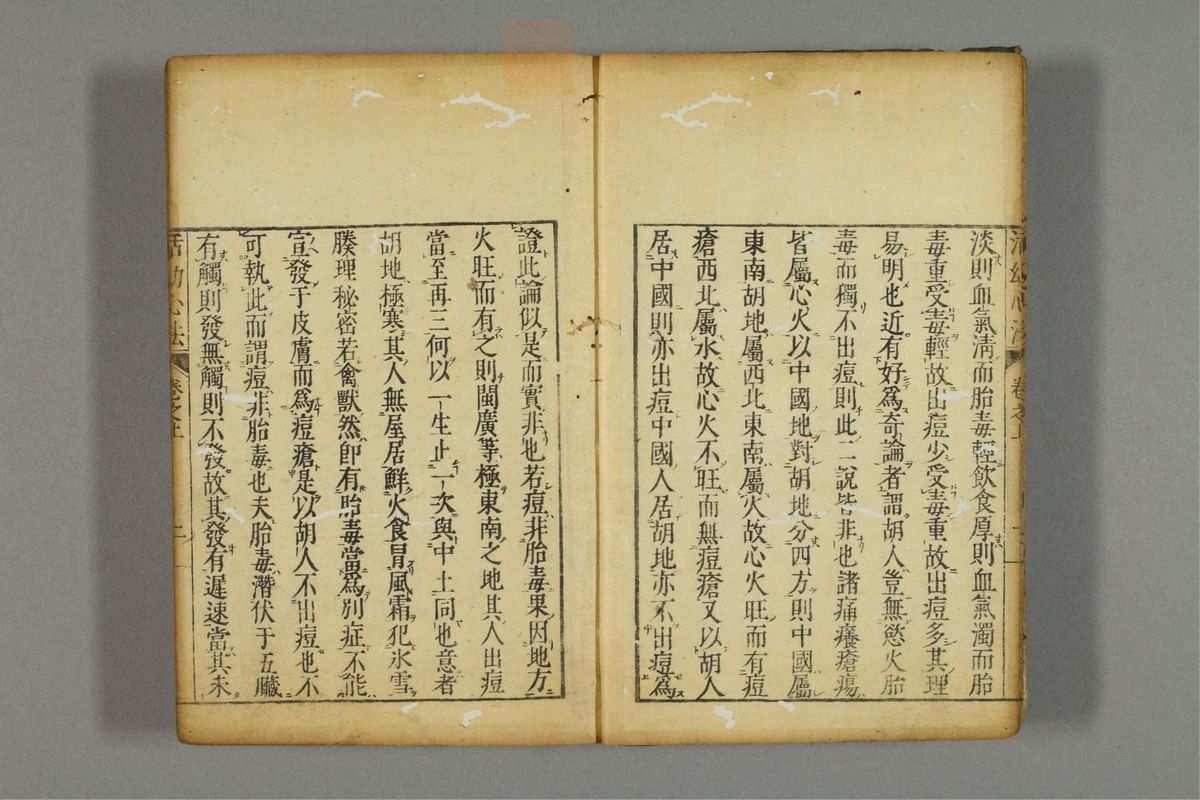 淡則血氣淸而胎毒輕飲食厚則血氣濁而胎
毒重受毒輕故出痘少受毒重故出痘多其理
易明也近有好爲奇論者謂胡人豈無慾火胎
毒而獨不出痘則此二說皆非也諸痛癢瘡瘍
皆屬心火以中國地對胡地分四方則中國屬
東南胡地屬西北東南屬火故心火旺而有痘
瘡西北屬水故心火不旺而無痘瘡又以胡人
居中國則亦出痘中國人居胡地亦不出痘爲
證此論似是而實非也若痘非胎毒果因地方
火旺而有之則閩廣等極東南之地其人出痘
當至再三何以一生止一次與中土同也意者
胡地極寒其人無屋居鮮火食冒風霜犯氷雪
腠理秘密若禽獸然卽有胎毒當爲別症不能
宣發于皮膚而爲痘瘡是以胡人不出痘也不
可執此而謂痘非胎毒也夫胎毒潛伏于五臟
有觸則發無觸則不發故其發有遲速當其未
活幼心法 卷之上